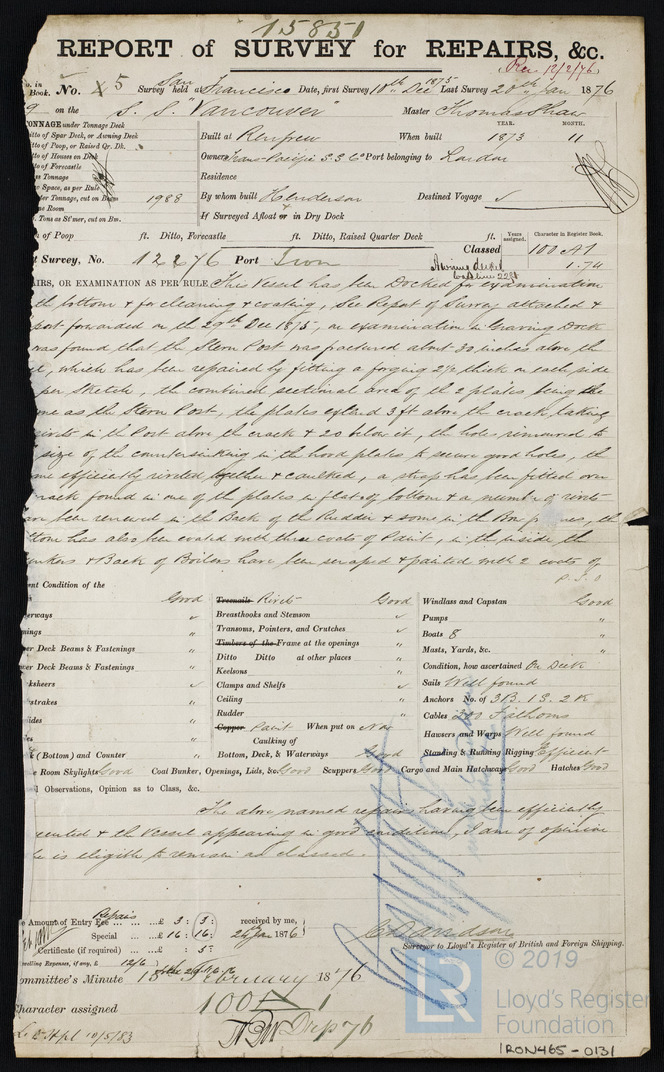 15851
REPORT of SURVEY for REPAIRS, &c.
Rec 12/2/76
in Book. No. 5 Survey held at San Francisco Date, first Survey 10th Dec 1875 Last Survey 20th Jan 1876
on the S.S. "Vancouver" Master Thomas Shaw
TONNAGE under Tonnage Deck
YEAR. MONTH.
itto of Spar Deck, or Awning Deck
Built at Renfrew When built 1873 11
tto of Poop, or Raised Qr. Dk.
tto of Houses on Deck
Owners Trans-Pacific S.S. Co Port belonging to London
to of Forecastle
ss Tonnage
Residence
Space, as per Rule
er Tonnage, cut on Beam 1988 By whom built Henderson Destined Voyage
ne Room
. Tons as St'mer, cut on Bm. If Surveyed Afloat or in Dry Dock
of Poop ft. Ditto, Forecastle ft. Ditto, Raised Quarter Deck ft.
Years assigned. Character in Register Book.
Classed 100 A1
t Survey, No. 12276 Port Iron Awning decked 1.74
AIRS, OR EXAMINATION AS PER RULE This Vessel has been Docked for examination
th bottom & for cleaning & coating, See Report of Survey attached &
port forwarded on the 29th Dec 1875, on examination in Graving Dock
was found that the Stern Post was fractured about 30 inches above the
, which has been repaired by fitting a forging 2½ thick on each side
per sketch, the combined sectional area of the 2 plates being the
me as the Stern Post, the plates extend 3 ft above the crack, taking
rivets in the Post above the crack & 20 below it, the holes rimoured to
size of the countersinking in the hood plates to secure good holes, th
me efficiently rivetted together & caulked, a strap has been fitted over
crack found in one of the plates in flat of bottom & a number of rivets
been renewed in th Back of the Rudder & some in the Bow, the
ttom has also been coated with three coats of Paint, in the inside the
unkers & Back of Boilers have been scraped & painted with 2 coats of
P.T.O
ent Condition of the
Good Treenails Rivets Good Windlass and Capstan Good
erways " Breasthooks and Stemson Pumps "
mings " Transoms, Pointers, and Crutches Boats 8 "
er Deck Beams & Fastenings " Timbers of the Frame at the openings " Masts, Yards, &c. "
Ditto Ditto at other places "
wer Deck Beams & Fastenings " Keelsons " Condition, how ascertained On Deck
ksheers Clamps and Shelfs Sails Well found
strakes " Ceiling " Anchors No. of 3 B. 1 S. 2 K
sides " Rudder " Cables 270 Fathoms
es " Copper Paint When put on Now Hawsers and Warps Well found
Caulking of
k (Bottom) and Counter " Bottom, Deck, & Waterways Good Standing & Running Rigging Efficient
e Room Skylights Good Coal Bunker, Openings, Lids, &c. Good Scuppers Good Cargo and Main Hatchways Good Hatches Good
l Observations, Opinion as to Class, &c.
The above named repairs having been efficiently
ecuted & the Vessel appearing in good condition, I am of opinion
e is eligible to remain as classed.
Repairs
e Amount of Entry Fee ... £ 3 : 3 : received by me,
Special ... £ 16 : 16 : 24 Jan 1876
Certificate (if required) ... £ : 5 :
C. Davidson
Surveyor to Lloyd's Register of British and Foreign Shipping.
velling Expenses, if any, £ 12/6 )
ommittee's Minute 15 February 1876
Character assigned 100 A 1
10/5/83
© 2019
LR
Lloyd's Register Foundation
IRON465 - 0131